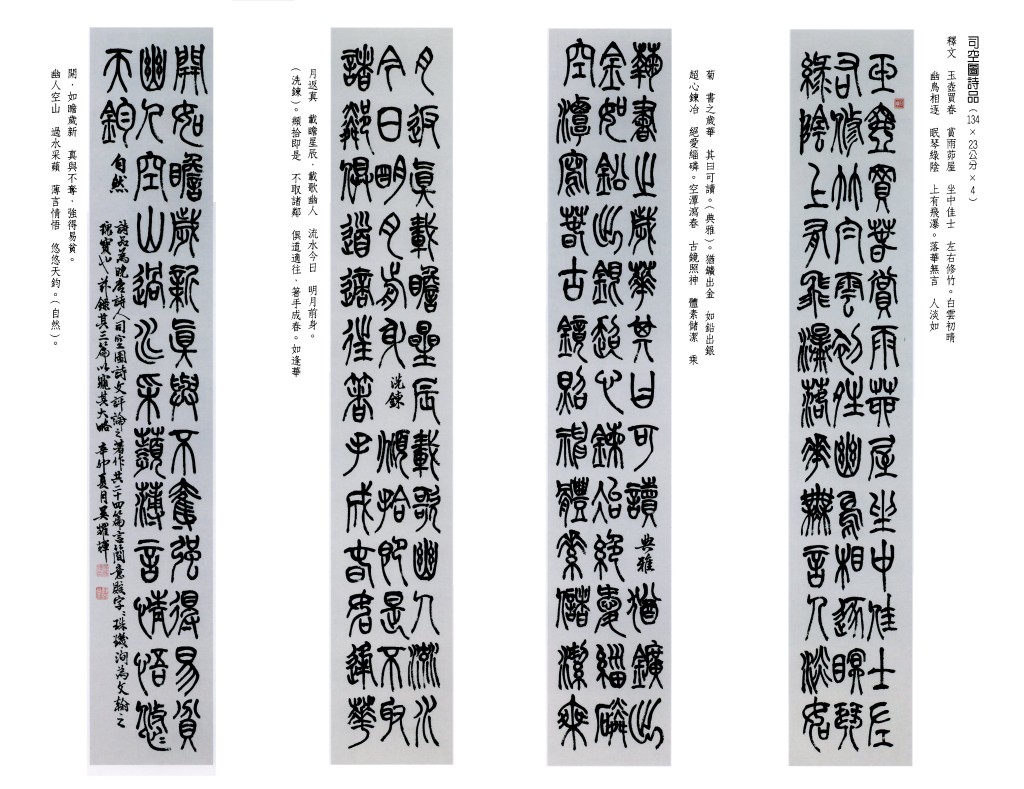 司空圖詩品（134×23公分×4）
釋文　玉壺買春　賞雨茆屋　坐中佳士　左右修竹。白雲初晴
幽鳥相逐　眠琴綠陰　上有飛瀑。落華無言　人淡如
玉壺買春賞雨茆屋坐中佳士左
右修竹白雲初晴幽鳥相逐眠琴
綠陰上有飛瀑落華無言人淡如
菊　書之歲華　其曰可讀。（典雅）。猶鑛出金　如鉛出銀
超心鍊冶　絕愛緇磷。空潭瀉春　古鏡照神　體素儲潔　乘
菊書之歲華其曰可讀 典雅 猶鑛出
金如鉛出銀超心鍊冶絕愛緇磷
空潭瀉春古鏡照神體素儲潔乘
月返真　載瞻星辰．載歌幽人　流水今日　明月前身。
（洗鍊）。頫拾即是　不取諸鄰　俱道適往．著手成春。如逢華
月返真載瞻星辰載歌幽人流水
今日明月前身 洗鍊 頫拾即是不取
諸鄰俱道適往著手成春如逢華
開．如瞻歲新　真與不奪．強得易貧。
幽人空山　過水采蘋　薄言情悟　悠悠天鈞。（自然）。
開如瞻歲新真與不奪强得易貧
幽人空山過水采蘋薄言情悟悠〻
天鈞 自然
詩品為晚唐詩人司空圖詩文評論之著作共二十四篇言簡意賅字〻珠璣洵為文翰之
瑰寶也茲錄其三篇以窺其大略 辛卯夏月吳耀輝